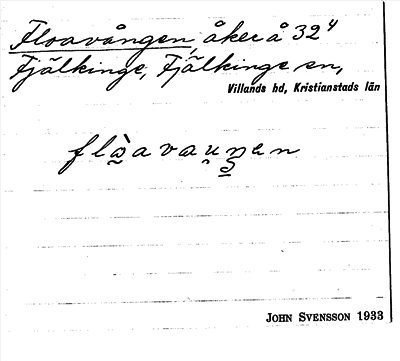 Floavången, åker å 32⁴
Fjälkinge, Fjälkinge sn,
Villands hd, Kristianstads län
flàavaunen
JOHN SVENSSON 1933